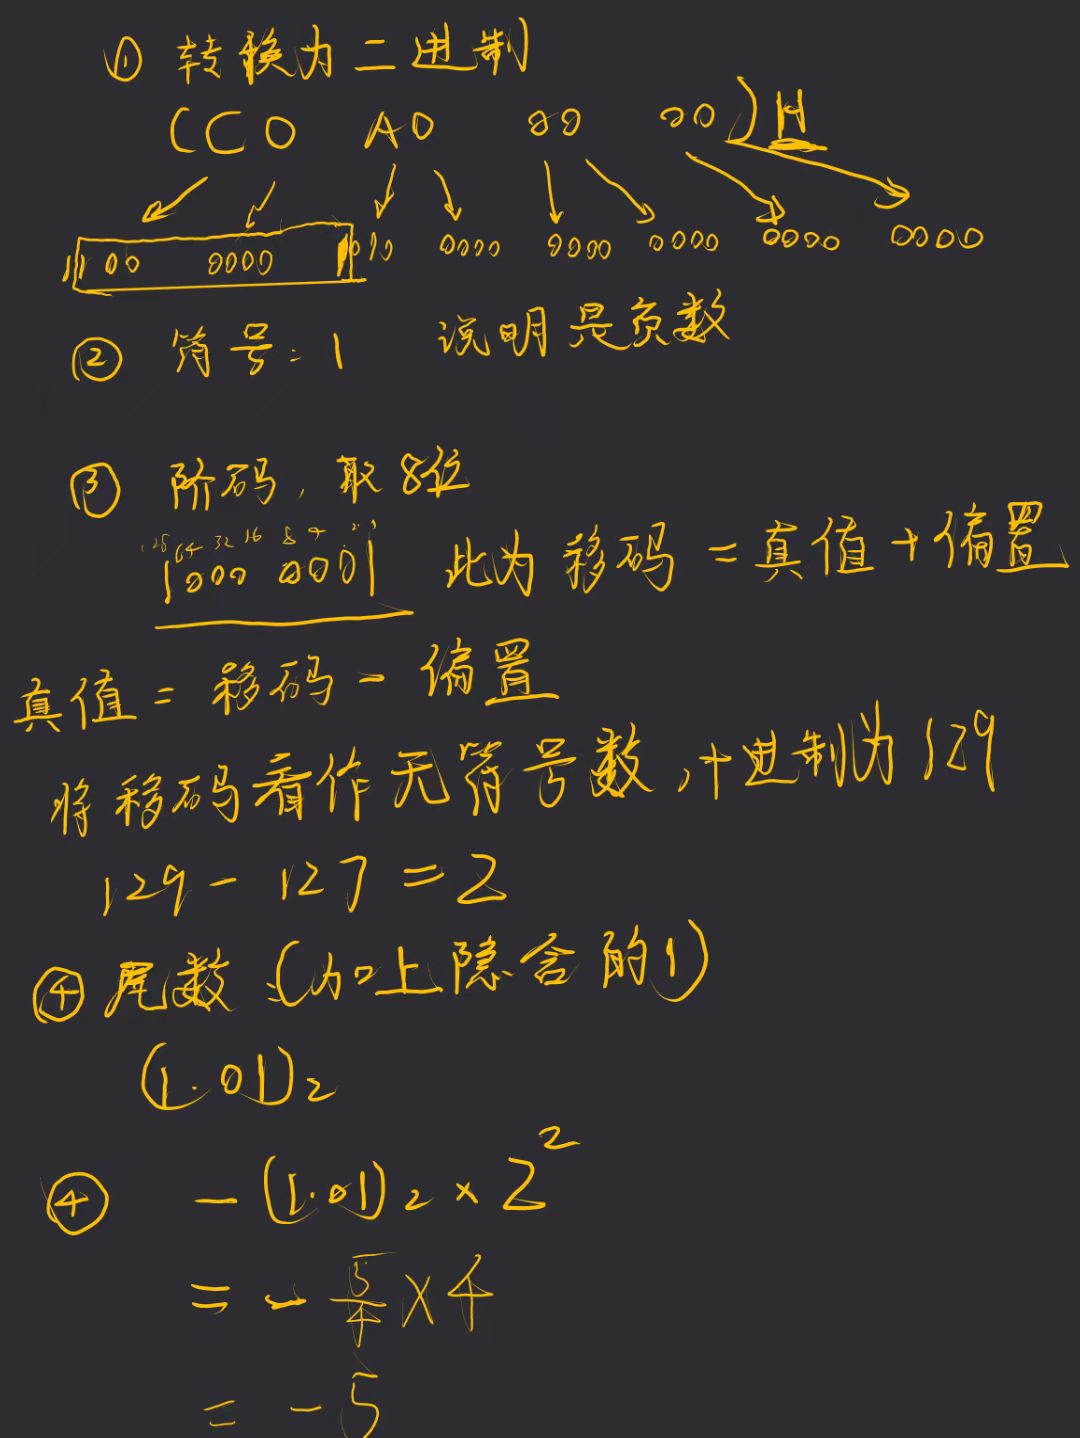 ① 转换为二进制
(C0 A0 00 00)H
1100 0000 1010 0000 0000 0000 0000 0000
② 符号:1 说明是负数
③ 阶码,取8位
128 64 32 16 8 4 2 1
1000 0001 此为移码=真值+偏置
真值=移码-偏置
将移码看作无符号数,十进制为129
129-127=2
④ 尾数:(加上隐含的1)
(1.01)₂
④ -(1.01)₂×2²
=-5/4×4
=-5